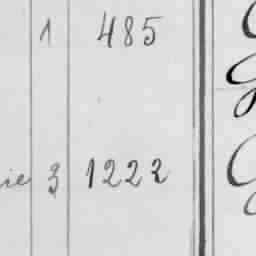 1 485
3 1222